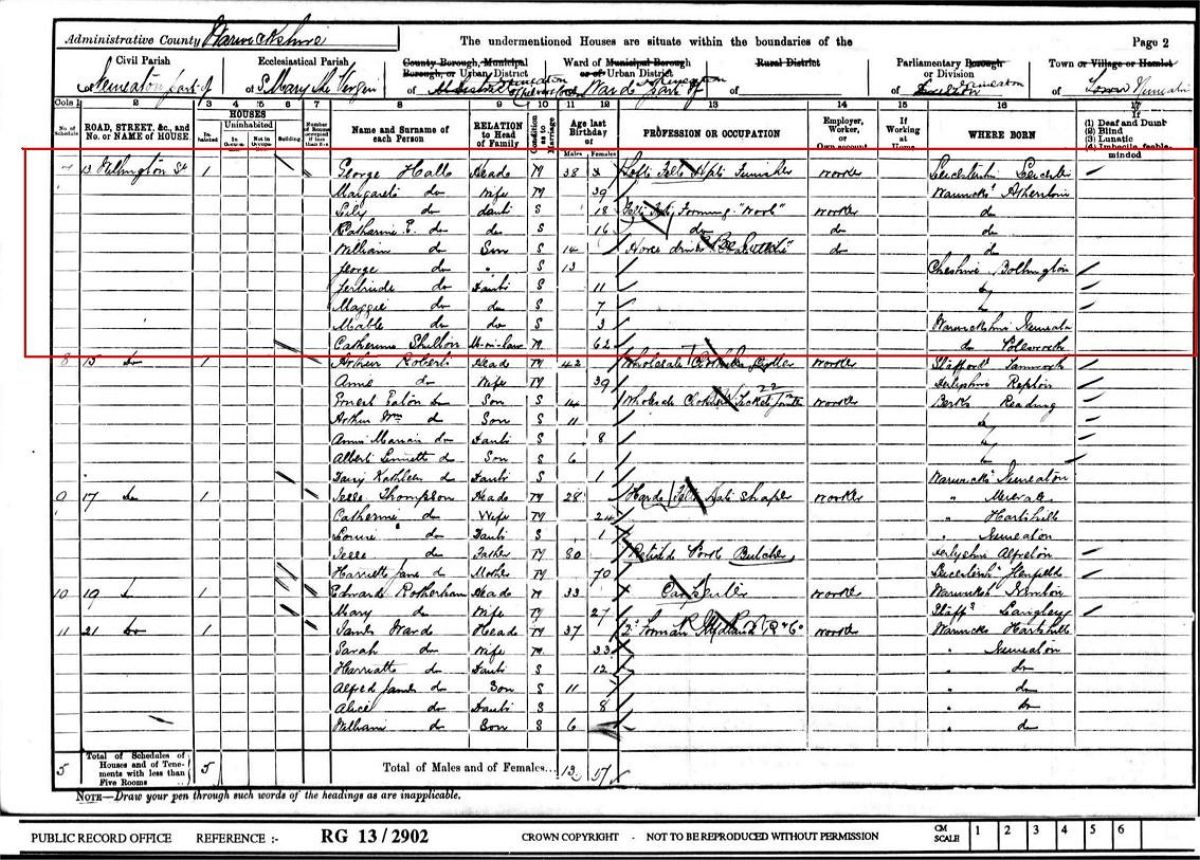 Administrative County Warwickshire The undermentioned Houses are situate within the boundaries of the Page 2
Civil Parish Ecclesiastical Parish County Borough, Municipal Borough, or Urban District Ward of Municipal Borough or of Urban District Rural District Parliamentary Borough or Division Town or Village or Hamlet
of Nuneaton part of of S Mary the Virgin of of Ward part of of of of Town Nuneaton
Cols 1 2 3 4 5 6 7 8 9 10 11 12 13 14 15 16 17
No. of Schedule ROAD, STREET, &c., and No. or NAME of HOUSE. HOUSES Inhabited Uninhabited In Occupation Not in Occupation Building Number of Rooms occupied if less than five Name and Surname of each Person RELATION to Head of Family Condition as to Marriage Age last Birthday of Males Females PROFESSION OR OCCUPATION Employer, Worker, or Own account If Working at Home WHERE BORN (1) Deaf and Dumb (2) Blind (3) Lunatic (4) Imbecile, feeble-minded
7 13 St 1 George Hall Head M 38 Hat Finisher worker
Margaret do Wife M 39 Warwicks Atherstone
Lily do Daur S 18 Felt Hat Forming "Wool" worker do
Catherine E. do do S 16 do do do
William do Son S 14 Horse driver do do
George do " S 13 Cheshire Bollington
Gertrude do Daur S 11 "
Maggie do do S 7 "
Mable do do S 3 Warwickshire Nuneaton
Catherine Shilton M-in-law 62 do Polesworth
8 15 do 1 Arthur Roberts Head M 42 Wholesale worker Stafford Tamworth
Annie do Wife M 39 Derbyshire Repton
Ernest Eaton do Son S 14 Wholesale worker Berks Reading
Arthur Wm do Son S 11 "
Annie Marian do Daur S 8 "
Albert do Son S 6 "
Kathleen do Daur S 1 Warwicks Nuneaton
9 17 do 1 Jesse Thompson Head M 28 Hard Felt Hat Shaper worker "
Catherine do Wife M 24 " Hartshill
do Daur S 1 " Nuneaton
Jesse do Father M 80 Retired Pork Butcher Derbyshire Alfreton
Harriett Jane do Mother M 70
10 19 do 1 Edward Rotherham Head M 33 Carpenter worker Warwicks
Mary do Wife M 27 Staffs Langley
11 21 do 1 James Ward Head M 37 worker Warwicks Hartshill
Sarah do Wife M 33 " Nuneaton
Harriatt do Daur S 12 " do
Alfred James do Son S 11 " do
Alice do Daur S 8 " do
William do Son S 6 " do
5 Total of Schedules of Houses and of Tenements with less than Five Rooms 5 Total of Males and of Females... 13 17
NOTE—Draw your pen through such words of the headings as are inapplicable.
PUBLIC RECORD OFFICE REFERENCE :- RG 13/2902 CROWN COPYRIGHT - NOT TO BE REPRODUCED WITHOUT PERMISSION CM SCALE 1 2 3 4 5 6